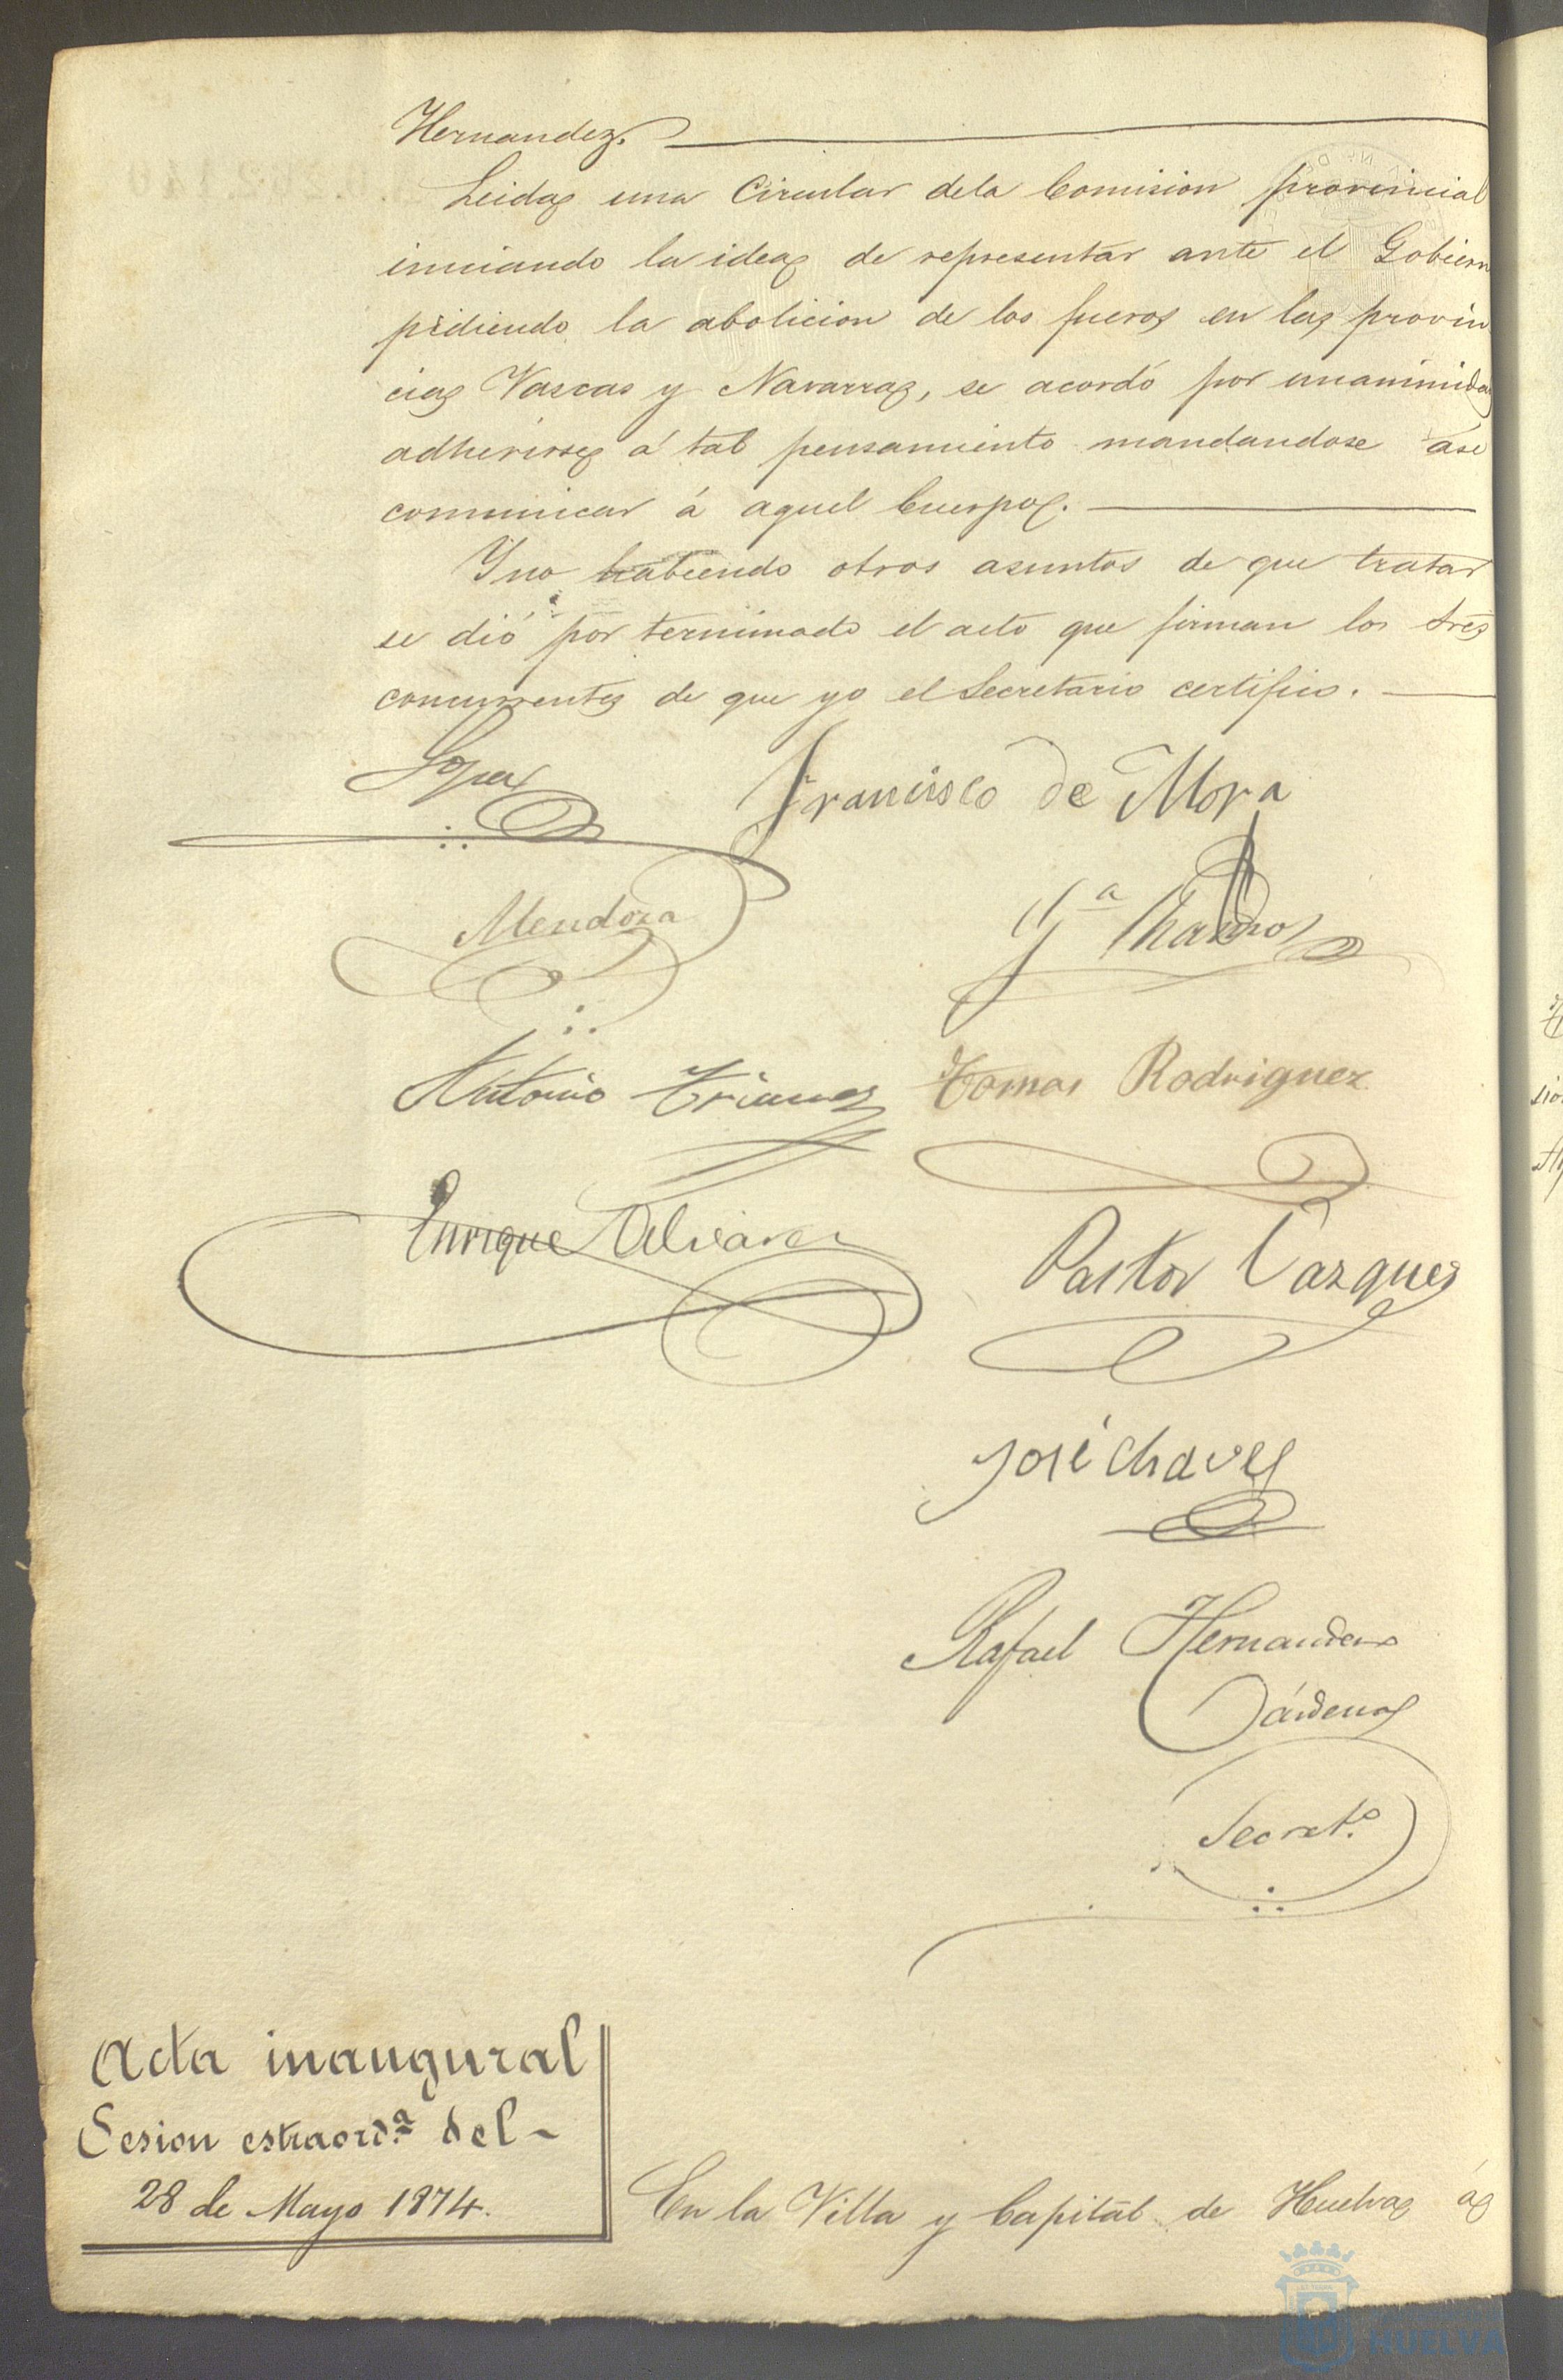 Hernandez.
Leida una Circular dela Comision provincial
iniciando la idea de representar ante el Gobiern
pidiendo la abolicion de los fueros en las provin
cias Vascas y Navarra, se acordó por unanimida
adherirse á tal pensamiento mandandose asi
comunicar á aquel Cuerpo.
Y no habiendo otros asuntos de que tratar
se dió por terminado el acto que firman los Sres
concurrentes de que yo el Secretario certifico.
Lopez
Francisco de Mora
Mendoza
Antonio Trianes
Tomas Rodriguez
Enrique Alvarez
Pastor Vazquez
José Chaves
Rafael Hernandez
Cárdenas
Secret.º
Acta inaugural
Sesion estraord.ª del
28 de Mayo 1874.
En la Villa y Capital de Huelva á
HUELVA